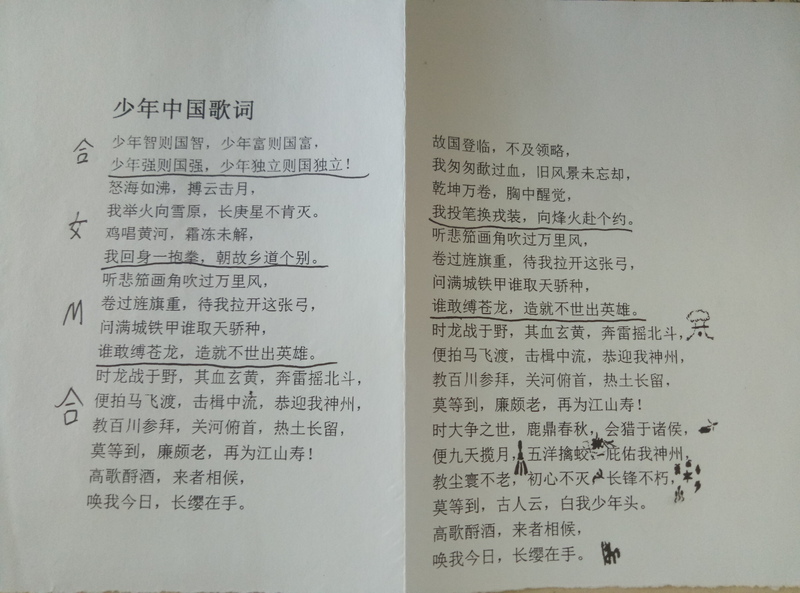 少年中国歌词
合 少年智则国智，少年富则国富，
少年强则国强，少年独立则国独立！
怒海如沸，搏云击月，
我举火向雪原，长庚星不肯灭。
女 鸡唱黄河，霜冻未解，
我回身一抱拳，朝故乡道个别。
听悲笳画角吹过万里风，
M 卷过旌旗重，待我拉开这张弓，
问满城铁甲谁取天骄种，
谁敢缚苍龙，造就不世出英雄。
合 时龙战于野，其血玄黄，奔雷摇北斗，
便拍马飞渡，击楫中流，恭迎我神州，
教百川参拜，关河俯首，热土长留，
莫等到，廉颇老，再为江山寿！
高歌酹酒，来者相候，
唤我今日，长缨在手。
故国登临，不及领略，
我匆匆歃过血，旧风景未忘却，
乾坤万卷，胸中醒觉，
我投笔换戎装，向烽火赴个约。
听悲笳画角吹过万里风，
卷过旌旗重，待我拉开这张弓，
问满城铁甲谁取天骄种，
谁敢缚苍龙，造就不世出英雄。
时龙战于野，其血玄黄，奔雷摇北斗，
便拍马飞渡，击楫中流，恭迎我神州，
教百川参拜，关河俯首，热土长留，
莫等到，廉颇老，再为江山寿！
时大争之世，鹿鼎春秋，会猎于诸侯，
便九天揽月，五洋擒蛟，庇佑我神州，
教尘寰不老，初心不灭，长锋不朽，
莫等到，古人云，白我少年头。
高歌酹酒，来者相候，
唤我今日，长缨在手。